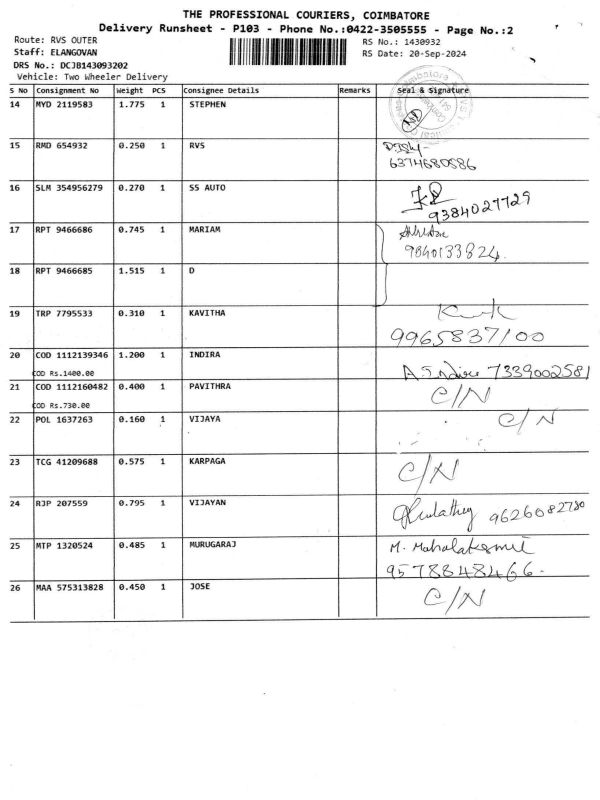 THE PROFESSIONAL COURIERS, COIMBATORE
Delivery Runsheet - P103 - Phone No.:0422-3505555 - Page No.:2
Route: RVS OUTER
RS No.: 1430932
Staff: ELANGOVAN
RS Date: 20-Sep-2024
DRS No.: DCJB143093202
Vehicle: Two Wheeler Delivery
S No Consignment No Weight PCS Consignee Details Remarks Seal & Signature
14 MYD 2119583 1.775 1 STEPHEN
15 RMD 654932 0.250 1 RVS
6374680586
16 SLM 354956279 0.270 1 SS AUTO
9384027729
17 RPT 9466686 0.745 1 MARIAM
9840133824.
18 RPT 9466685 1.515 1 D
19 TRP 7795533 0.310 1 KAVITHA
9965837100
20 COD 1112139346 1.200 1 INDIRA 7339002581
COD Rs.1400.00
21 COD 1112160482 0.400 1 PAVITHRA C/N
COD Rs.730.00
22 POL 1637263 0.160 1 VIJAYA C/N
23 TCG 41209688 0.575 1 KARPAGA C/N
24 RJP 207559 0.795 1 VIJAYAN 9626082780
25 MTP 1320524 0.485 1 MURUGARAJ M. Mahalakshmi
9578848466.
26 MAA 575313828 0.450 1 JOSE C/N